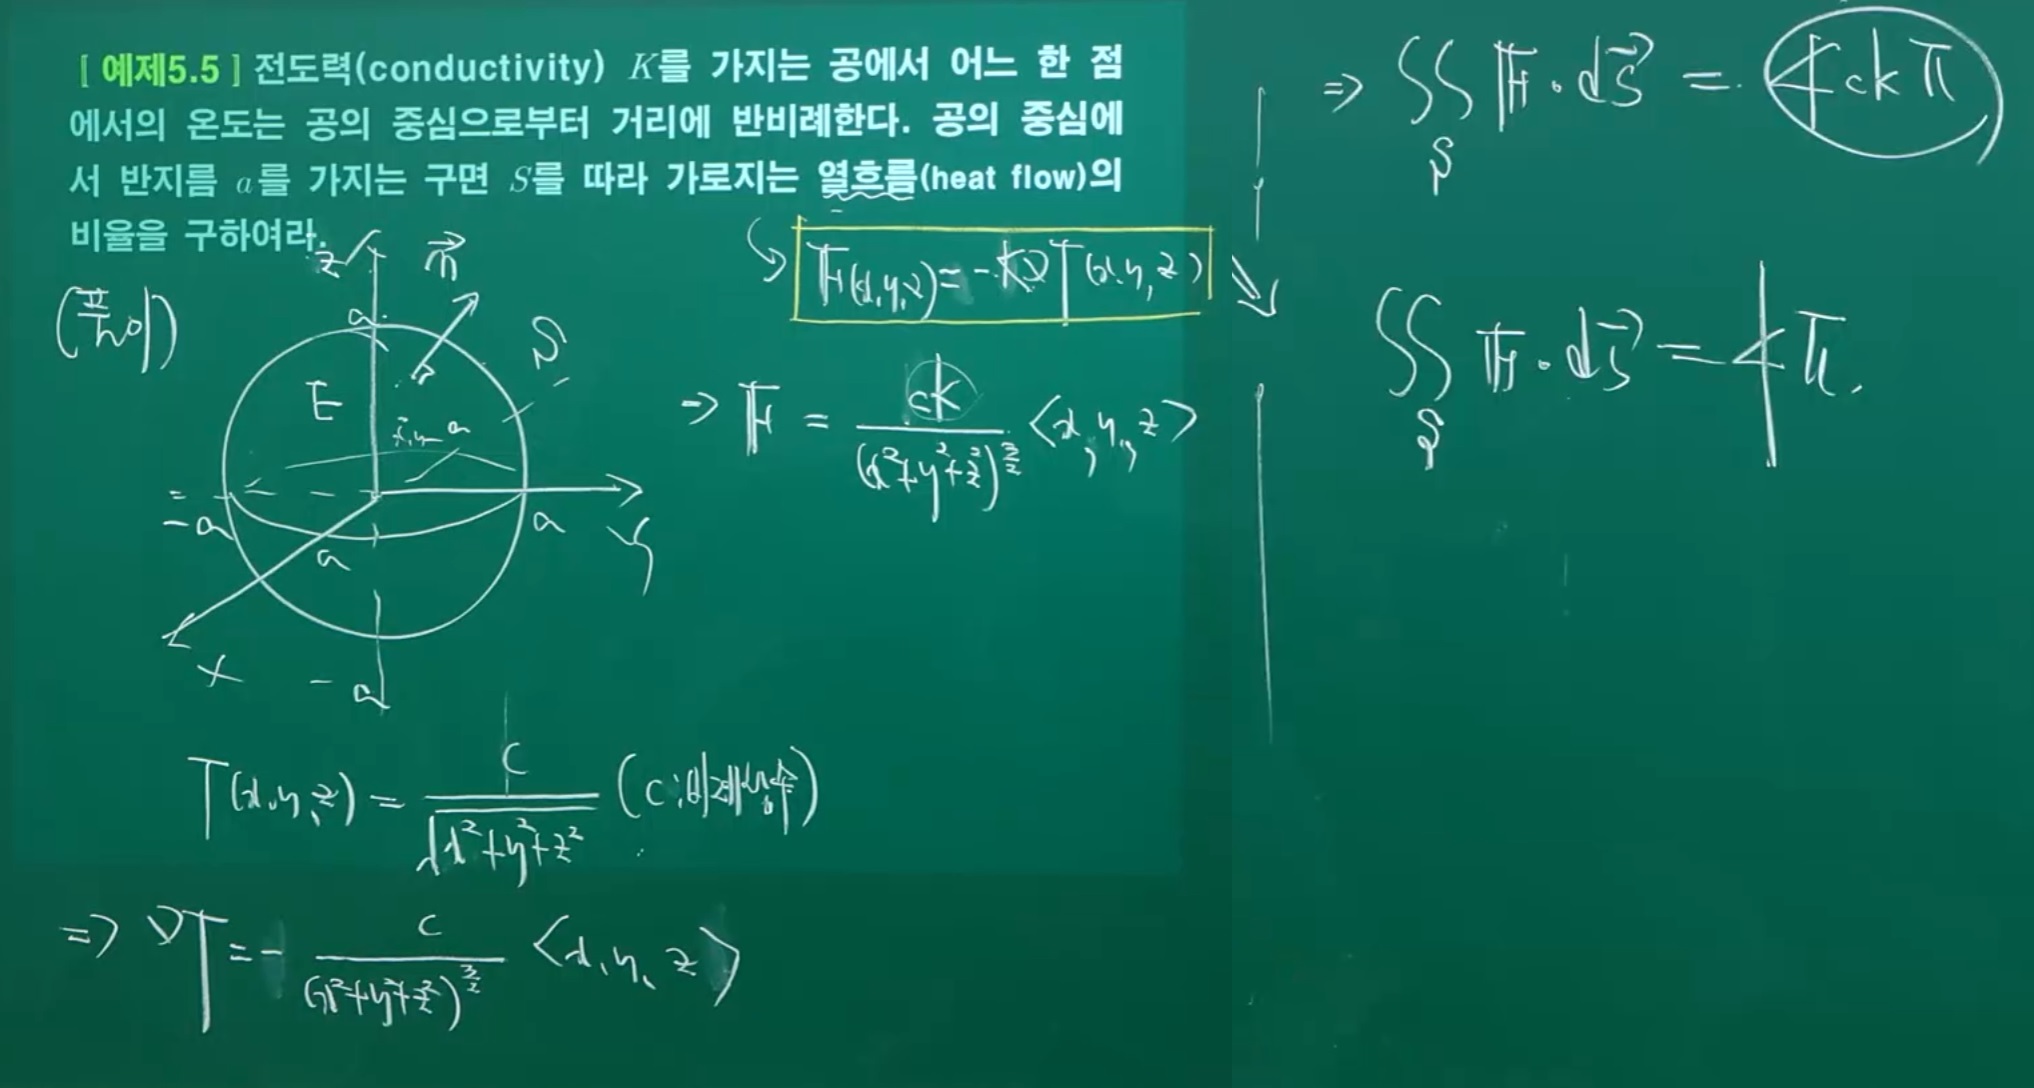 [ 예제5.5 ] 전도력(conductivity) K를 가지는 공에서 어느 한 점
에서의 온도는 공의 중심으로부터 거리에 반비례한다. 공의 중심에
서 반지름 a를 가지는 구면 S를 따라 가로지는 열흐름(heat flow)의
비율을 구하여라.
(풀이)
z
n⃗
a
S
E
a
-a
a
a
y
x
-a
T(x,y,z) = c/√(x²+y²+z²) (c:비례상수)
⇒ ∇T = - c/(x²+y²+z²)^(3/2) <x, y, z>
F(x,y,z) = -K∇T(x,y,z)
⇒ F = cK/(x²+y²+z²)^(3/2) <x, y, z>
⇒ ∬_S F·dS⃗ = 4cKπ
∬_S F·dS⃗ = 4π.